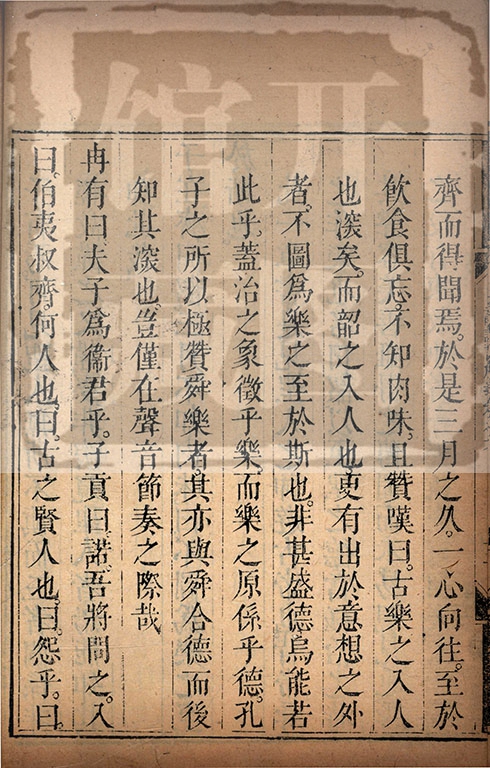 齊而得聞焉。於是三月之久。一心向往。至於
飲食俱忘。不知肉味。且贊嘆曰。古樂之入人
也深矣。而韶之入人也更有出於意想之外
者。不圖爲樂之至於斯也。非甚盛德烏能若
此乎。蓋治之象徵乎樂而樂之原係乎德。孔
子之所以極贊舜樂者。其亦與舜合德而後
知其深也。豈僅在聲音節奏之際哉
冉有曰。夫子爲衞君乎。子貢曰。諾。吾將問之。入
曰。伯夷叔齊。何人也。曰。古之賢人也。曰。怨乎。曰。